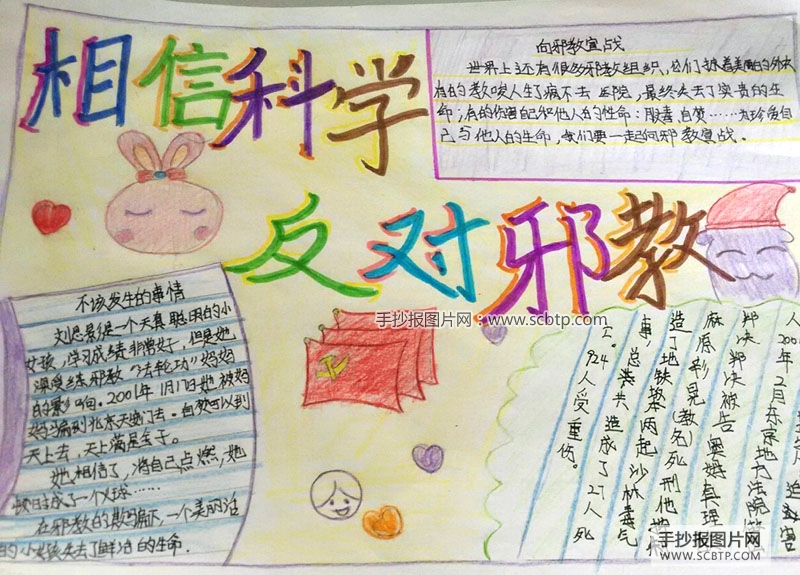 相信科学
反对邪教
向邪教宣战
世界上还有很多邪教组织,它们披着美丽的外衣
有的教唆人生了病不去医院,最终失去了宝贵的生
命;有的伤害自己和他人的性命:服毒 自焚……为珍爱自
己与他人的生命,我们要一起向邪教宣战。
不该发生的事情
刘思影很是一个天真聪明的小
女孩,学习成绩非常好,但是她妈妈
深度练邪教“法轮功”妈妈
的影响。2001年1月1日她被妈
妈骗到北京天安门去。自焚可以到
天上去,天上满是金子。
她相信了,将自己点燃,她
顿时成了一个火球……
在邪教的欺骗下,一个美丽活
的小女孩失去了鲜活的生命.
手抄报图片网:www.scbtp.com
年2月东京地方法院
判决 判决被告 奥姆真理
麻原彰晃(教名)死刑他
造了地铁 两起 沙林毒气
事 总共 造成了 27人死
亡。924人受重伤。
手抄报图片网
WWW.SCBTP.COM